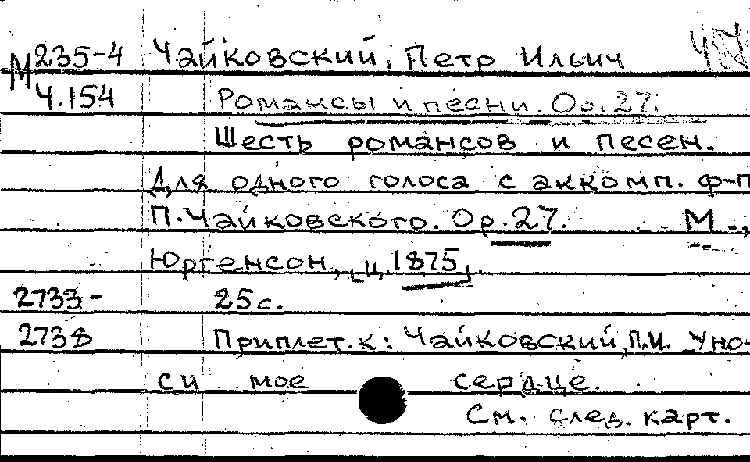 М 235-4 Чайковский, Петр Ильич
Ч.154 Романсы и песни. Ор.27.
Шесть романсов и песен.
Для одного голоса с аккомп. ф-п
П.Чайковского. Ор.27. М.,
Юргенсон, ц.1875.
2733- 25с.
2738 Приплет.к: Чайковский,П.И. Уно-
си мое сердце.
См. след. карт.